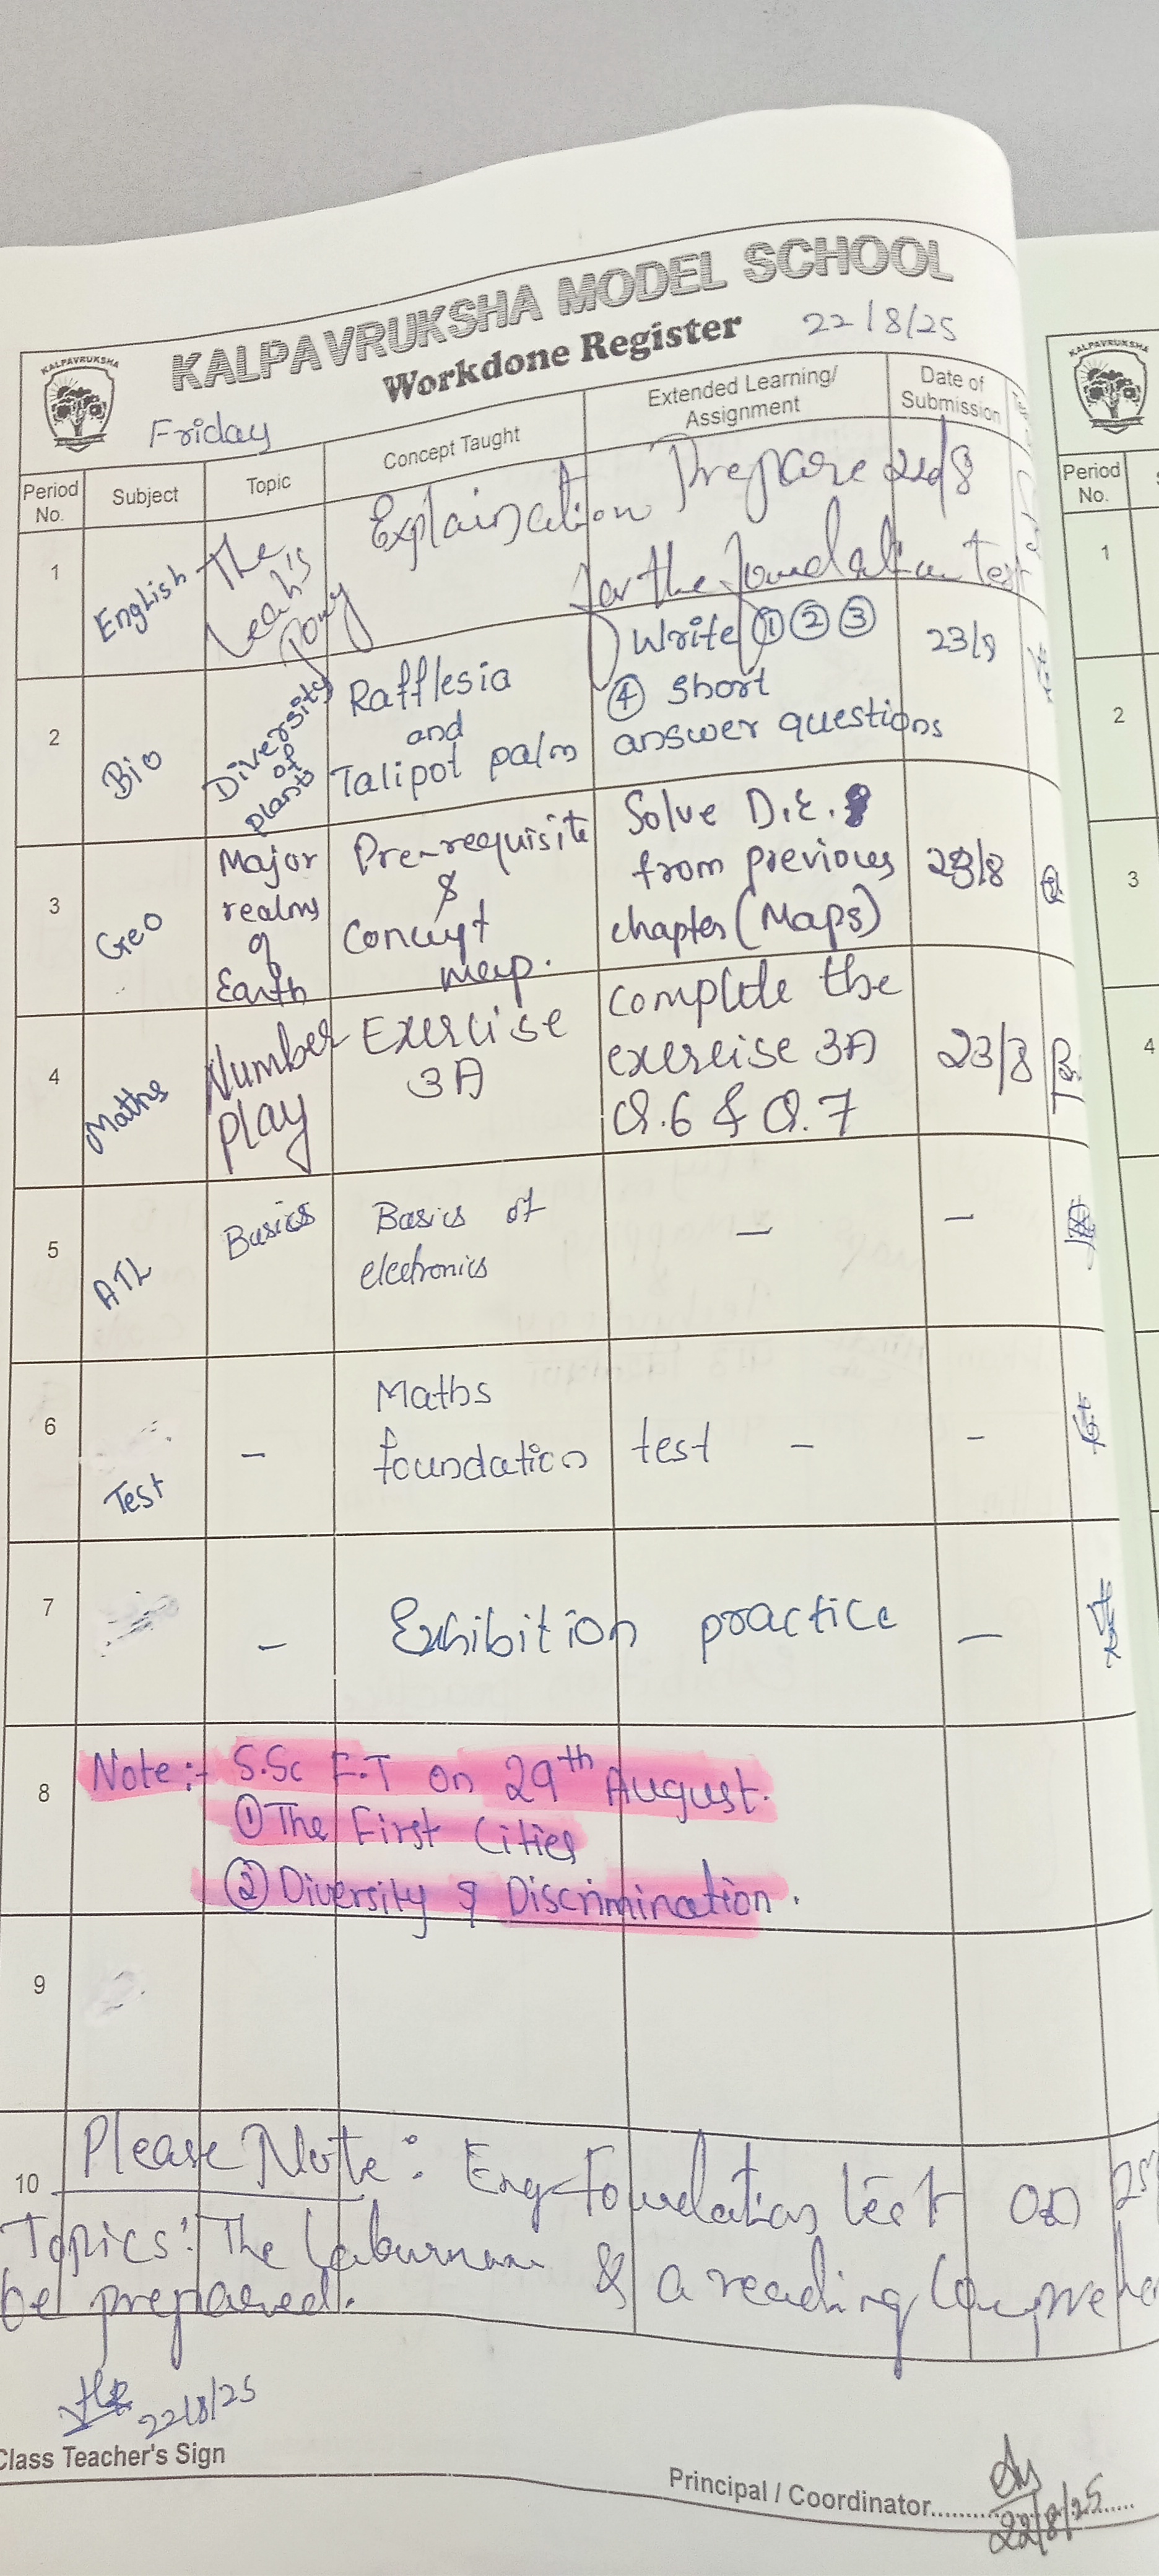 KALPAVRUKSHA MODEL SCHOOL
Workdone Register 22/8/25
KALPAVRUKSHA
Friday
Period No. Subject Topic Concept Taught Extended Learning/ Assignment Date of Submission
1 English The Leah's Pony Explaination Prepare
for the foundation Test
2 Bio Diversity of plants Rafflesia and Talipot palm Write ① ② ③ ④ short answer questions 23/8
3 Geo Major realms of Earth Pre-requisite & Concept map. Solve D.E. from previous chapter (Maps)
4 Maths Number play Exercise 3A Complete the exercise 3A Q.6 & Q.7 23/8
5 ATL Basics Basics of electronics – –
6 Test – Maths foundation test – –
7 – Exhibition practice –
8 Note:- S.Sc F.T on 29th August.
① The First Cities
② Diversity & Discrimination.
9
10 Please Note: Eng Foundation test on
Topics: The Laburnum & a reading
be prepared.
22/8/25
Class Teacher's Sign
Principal / Coordinator
22/8/25
KALPAVRUKSHA
Period No.
1
2
3
4